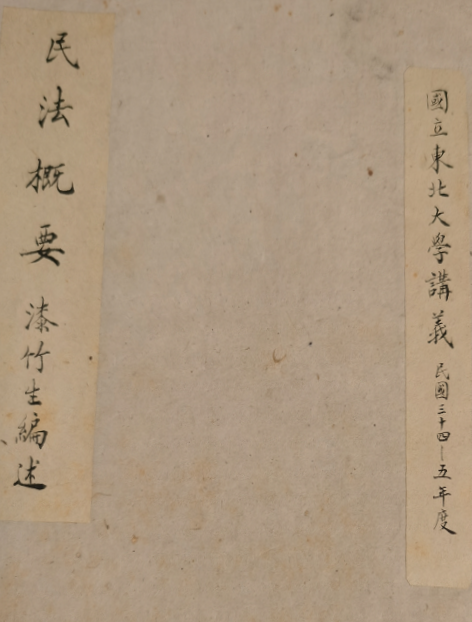 國立東北大學講義 民國三十四—五年度
民法概要 漆竹生編述